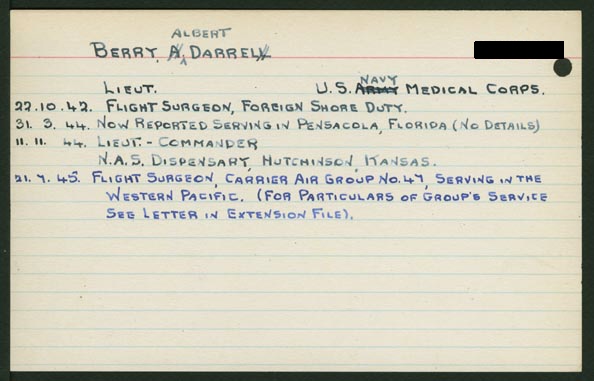 ALBERT
BERRY, A, DARRELL
LIEUT. U.S. ARMY NAVY MEDICAL CORPS.
22.10.42. FLIGHT SURGEON, FOREIGN SHORE DUTY.
31. 3. 44. NOW REPORTED SERVING IN PENSACOLA, FLORIDA (NO DETAILS)
11. 11. 44. LIEUT. - COMMANDER
N.A.S. DISPENSARY, HUTCHINSON, KANSAS.
21. 7. 45. FLIGHT SURGEON, CARRIER AIR GROUP NO. 47, SERVING IN THE
WESTERN PACIFIC. (FOR PARTICULARS OF GROUP'S SERVICE
SEE LETTER IN EXTENSION FILE).